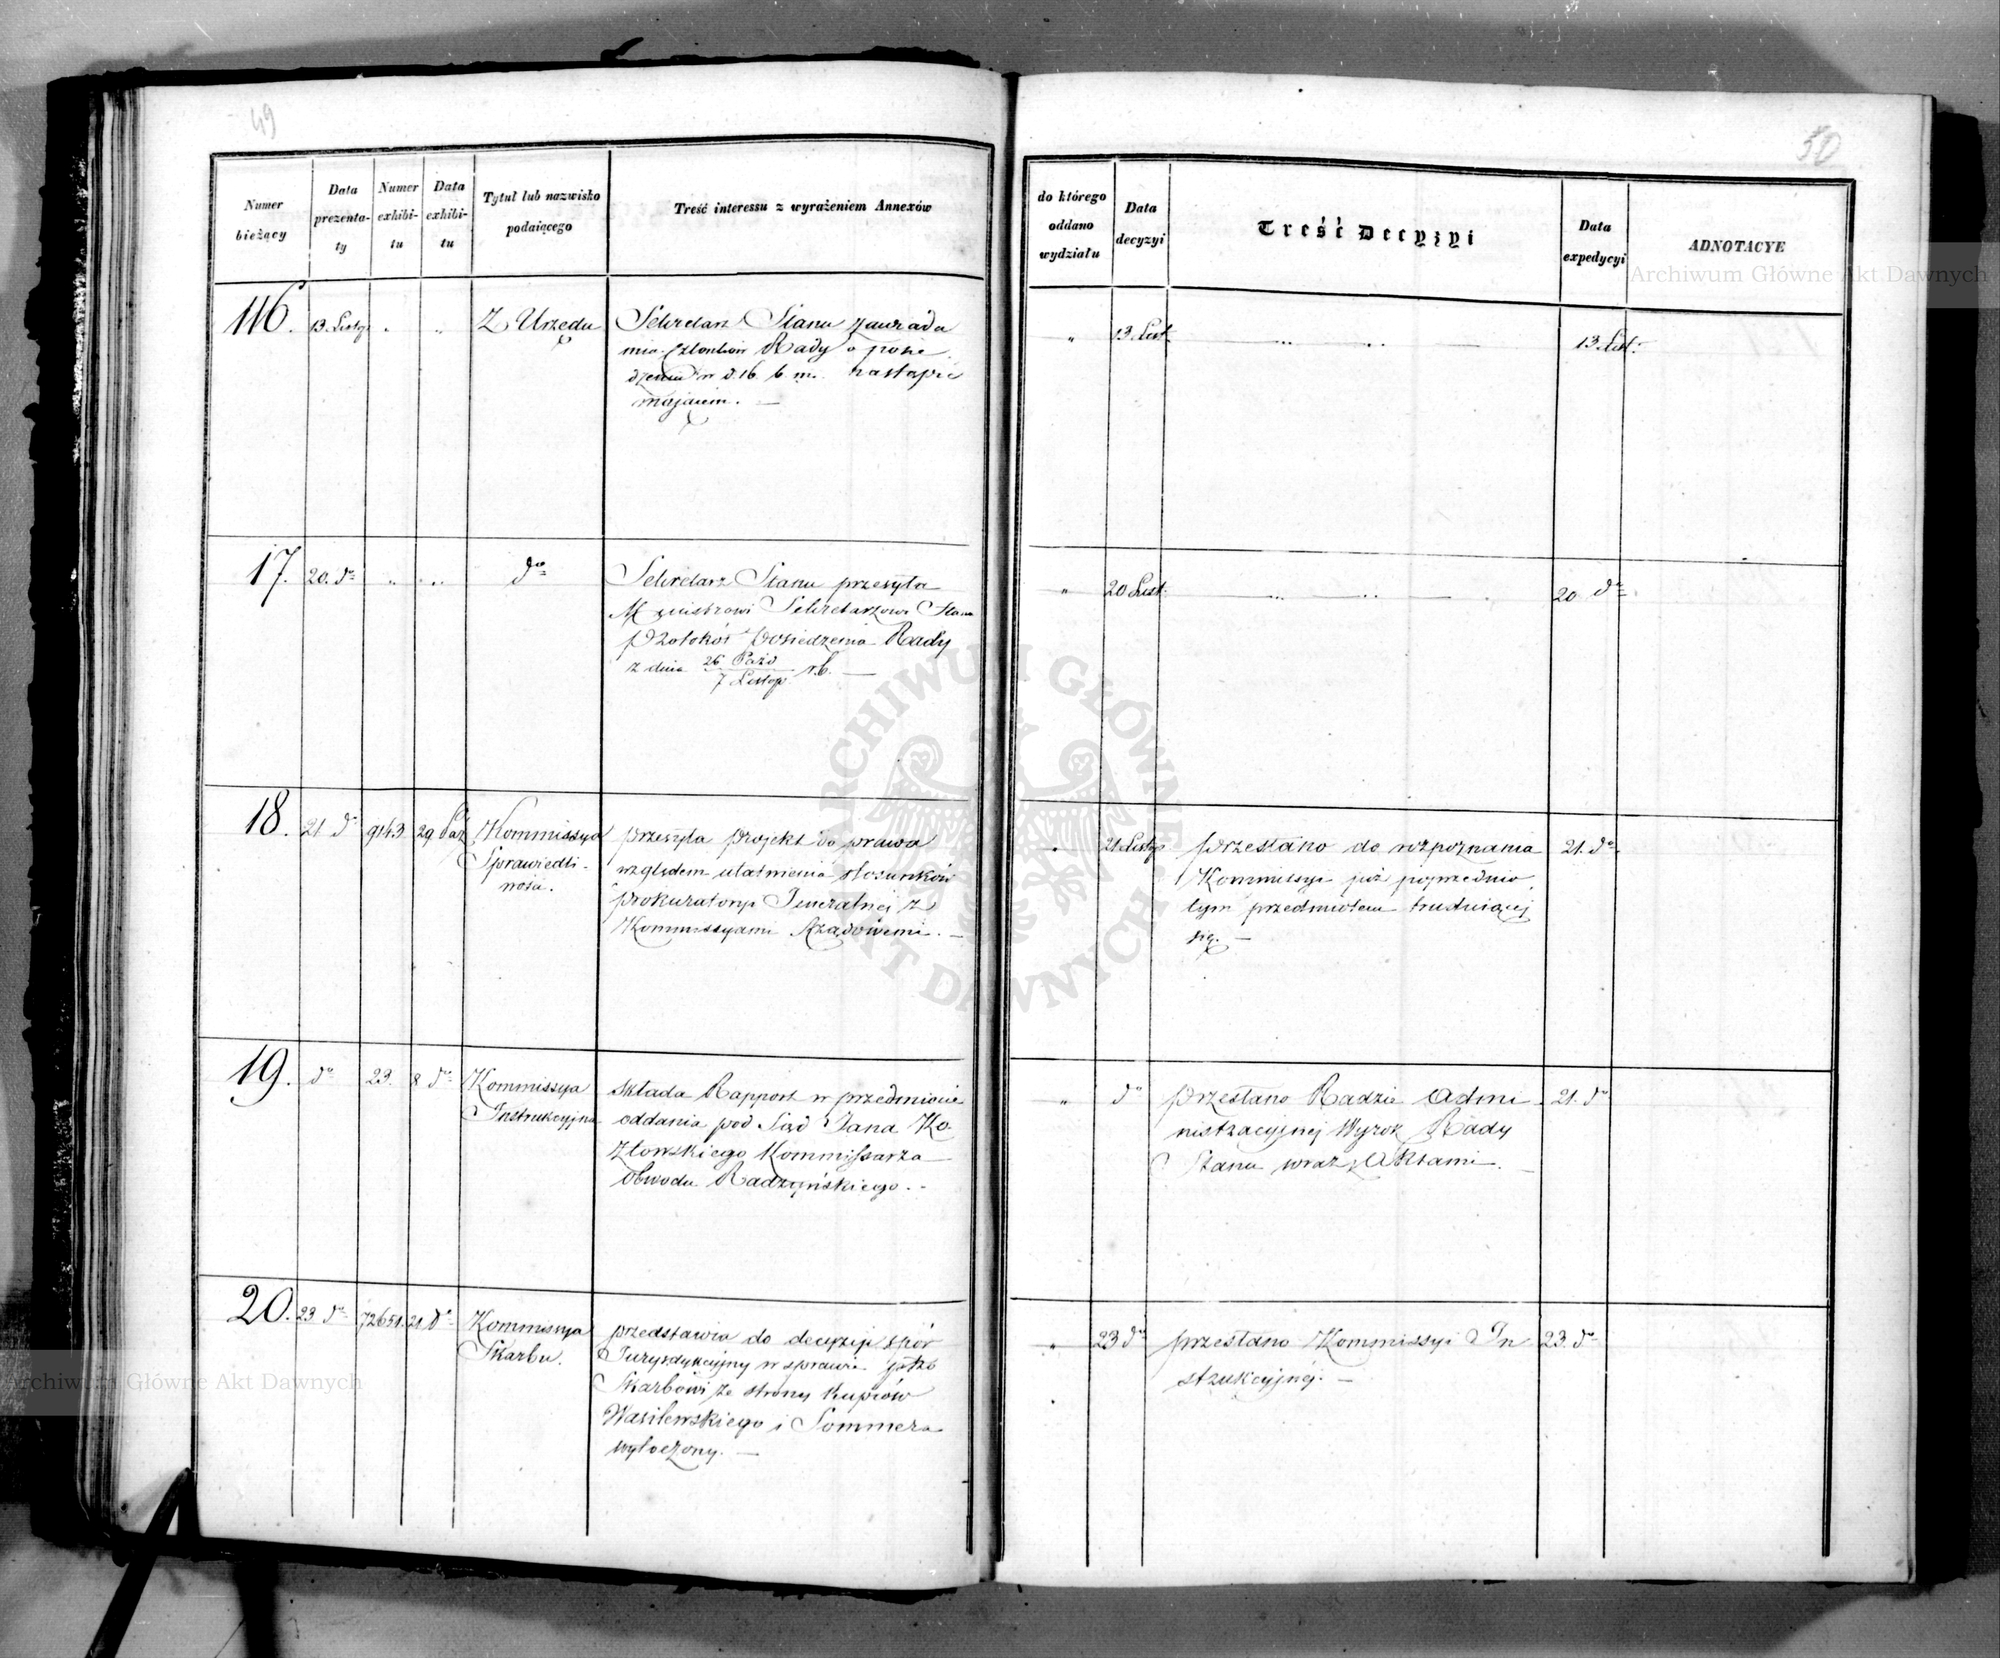 49
Numer bieżący
Data prezentaty
Numer exhibitu
Data exhibitu
Tytuł lub nazwisko podaiącego
Treść interessu z wyrażeniem Annexów
116. 13. Listp. „ „ Z Urzędu
Sekretarz Stanu zawiada
mia Członków Rady o posie
dzeniu w d. 16. b. m. nastąpić
mającem. —
17. 20. do „ „ do
Sekretarz Stanu przesyła
Ministrowi Sekretarzowi Stanu
Protokół Posiedzenia Rady
z dnia 26 Paźd / 7 Listop. r. b. —
18. 21 do 9143 29 Paź Kommissya
Sprawiedli-
wości.
przesyła projekt do prawa
względem ułatwienia stosunków
Prokuratoryi Jeneralnej z
Kommissyami Rządowemi. —
19. do 23. 8 do Kommissya
Instrukcyjna
składa Rapport w przedmiocie
oddania pod Sąd Jana Ko-
złowskiego Kommissarza
Obwodu Radzyńskiego. -
20. 23 do 72651. 21 do Kommissya
Skarbu.
przedstawia do decyzyi spór
Jurysdykcyjny w sprawie
Skarbowi ze strony kupców
Wasilewskiego i Sommera
wytoczony. —
50
do którego oddano wydziału
Data decyzyi
Treść Decyzyi
Data expedycyi
ADNOTACYE
„ 13 List. 13 List.
„ 20 List. 20 do
„ 21 Listp przesłano do rozpoznania 21. do
Kommissyi już poprzednio
tym przedmiotem trudniącej
się. —
„ do przesłano Radzie Admi- 21. do
nistracyjnej Wyrok Rady
Stanu wraz z Aktami. —
„ 23 do przesłano Kommissyi In 23. do
strukcyjnéj. —
Archiwum Główne Akt Dawnych
Archiwum Główne Akt Dawnych
ARCHIWUM GŁÓWNE AKT DAWNYCH